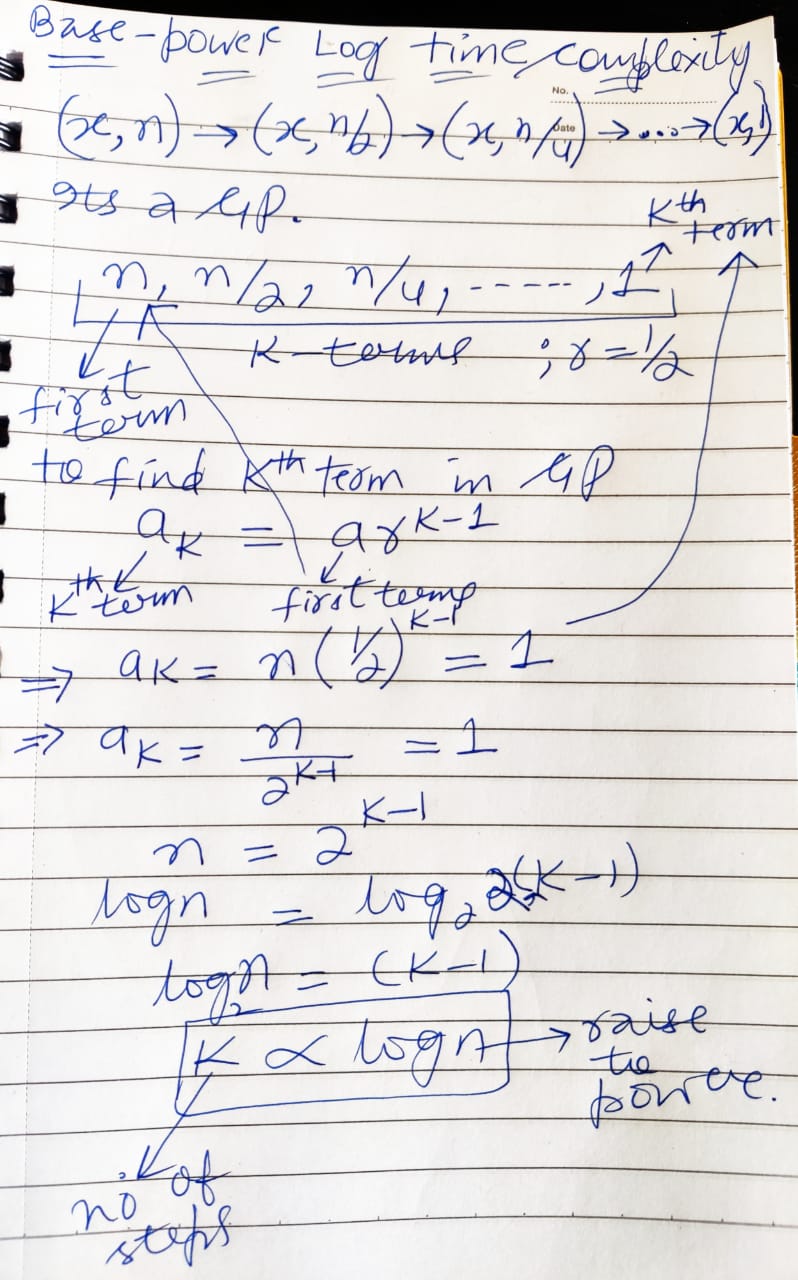 Base-power Log time complexity
No.
Date
(x, n) → (x, n/2) → (x, n/4) → ... → (x, 1)
Its a GP.
Kth term
n, n/2, n/4, ------, 1
K-terms ; r = 1/2
first term
to find Kth term in GP
aK = ar^K-1
Kth term first terms
⇒ aK = n(1/2)^K-1 = 1
⇒ aK = n/2^K-1 = 1
n = 2^K-1
logn = log2 2(K-1)
log2n = (K-1)
K ∝ logn → raise to
no of steps